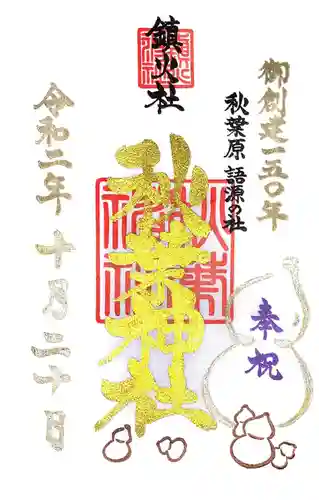 御創建一五〇年
秋葉原 語源の社
鎮火社
秋葉神社
奉祝
令和二年 十月二十日